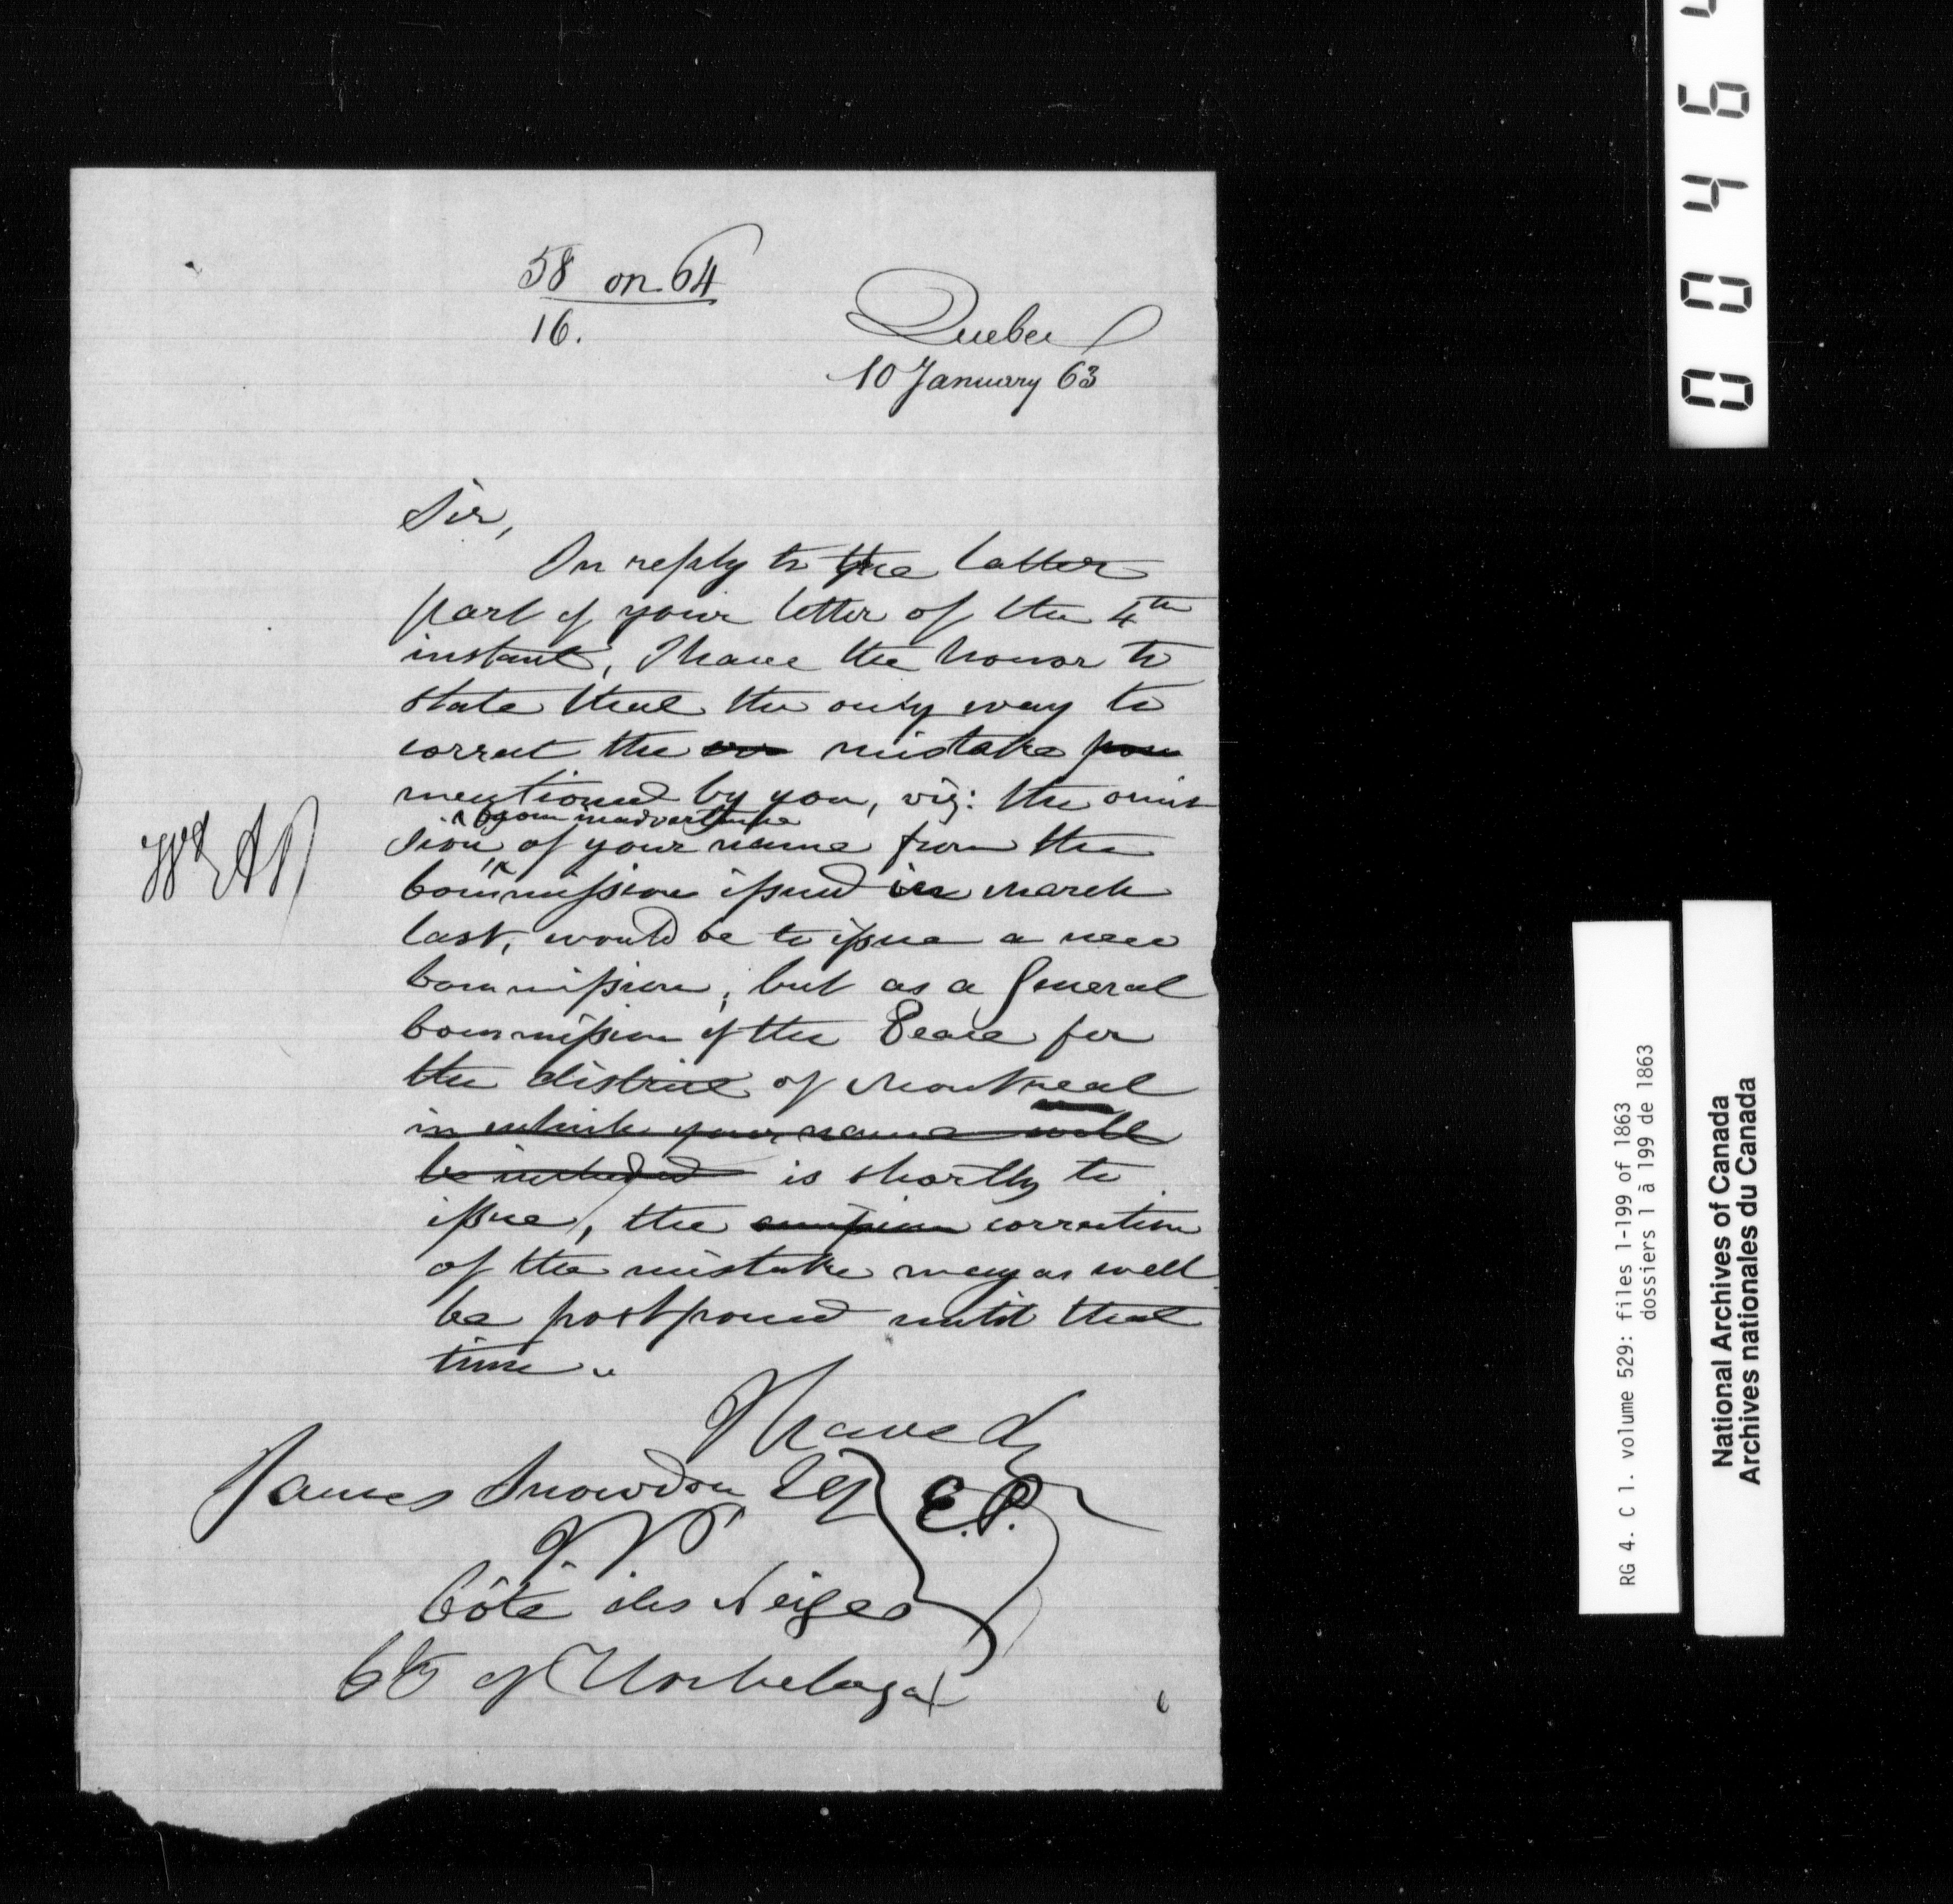 58 on 64
16.
Quebec
10 January 63
Sir,
In reply to the latter
part of your letter of the 4th
instant, I have the honor to
state that the only way to
correct the mistake
mentioned by you, viz: the omis
by an inadvertence
sion of your name from the
Commission issued in March
last, would be to issue a new
Commission, but as a General
Commission of the Peace for
the district of Montreal
in which your name will
be included is shortly to
issue, the omission correction
of the mistake may as well
be postponed until that
time.
I have &c
James Snowdon Esq
E.P.
J.P.
Côte des Neiges
Cty of Hochelaga
0 0 4 6 4
RG 4. C 1. volume 529: files 1-199 of 1863
dossiers 1 à 199 de 1863
National Archives of Canada
Archives nationales du Canada